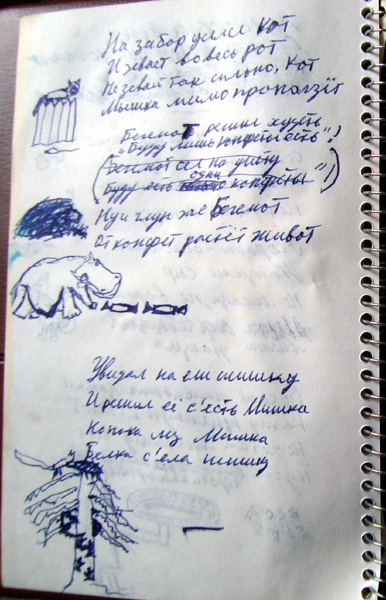 На забор уселся кот
И зевает во весь рот
Не зевай так сильно, кот
Мышка мимо проползёт
Бегемот решил худеть
"Буду лишь конфеты есть"!
(Бегемот сел на диету
одни
Буду есть только конфеты"!)
Ну и глуп же Бегемот
От конфет растёт живот
Увидел на ели шишку
И решил её с'есть Мишка
Копока лез Мишка
Белка с'ела шишку